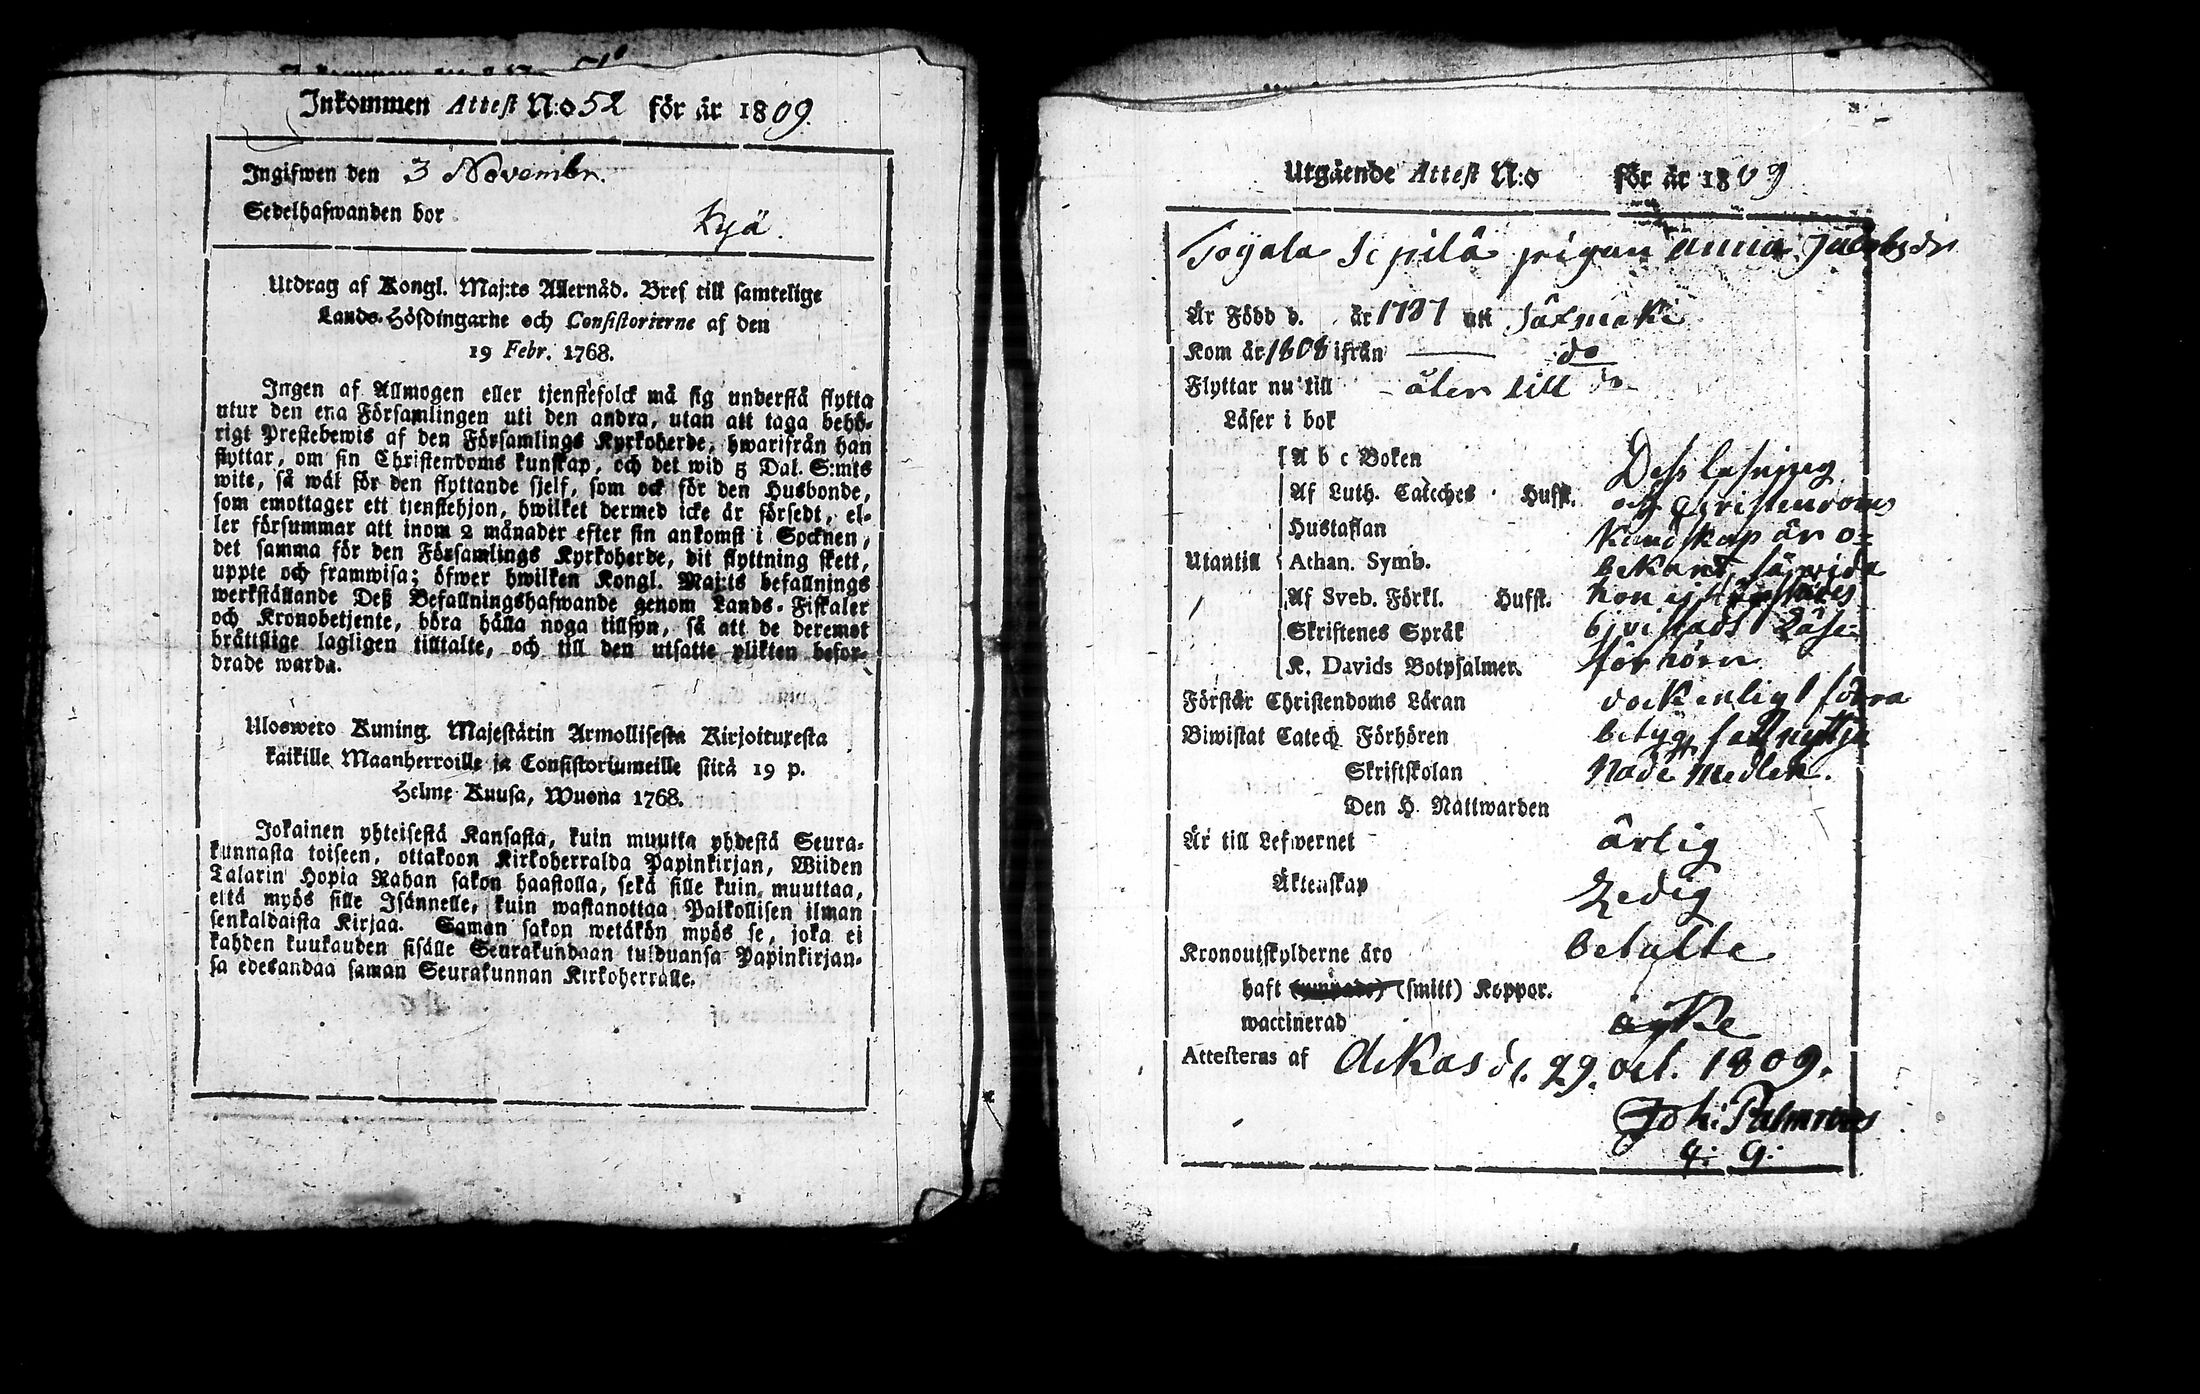 Inkommen Attest N:o 52 för år 1809.
Ingifwen den 3 Novembr.
Sedelhafwanden bor
Kyä.
Utdrag af Kongl. Maj:ts Allernåd. Bref till samtelige
Lands-Höfdingarne och Consistorierne af den
19 Febr. 1768.
Ingen af Allmogen eller tjenstefolck må sig understå flytta
utur den ena Församlingen uti den andra, utan att taga behö-
rigt Prestebewis af den Församlings Kyrkoherde, hwarifrån han
flyttar, om sin Christendoms kunskap, och det wid 5 Dal. S:mts
wite, så wäl för den flyttande sjelf, som ock för den Husbonde,
som emottager ett tjenstehjon, hwilket dermed icke är försedt, el-
ler försummar att inom 2 månader efter sin ankomst i Socknen,
det samma för den Församlings Kyrkoherde, dit flyttning skett,
uppte och framwisa; öfwer hwilken Kongl. Maj:ts befallnings
werkställande Deß Befallningshafwande genom Lands-Fiskaler
och Kronobetjente, böra hålla noga tillsyn, så att de deremot
bråttslige lagligen tilltalte, och till den utsatte plikten befor-
drade warda.
Uloswero Kuning. Majestätin Armollisesta Kirjoituxesta
kaikille Maanherroille ja Consistoriumeille siitä 19 p.
Helme Kuusa, Wuona 1768.
Jokainen yhteisestä Kansasta, kuin muutta yhdestä Seura-
kunnasta toiseen, ottakoon Kirkoherralda Papinkirjan, Wiiden
Talarin Hopia Rahan sakon haastolla, sekä sille kuin muuttaa,
että myös sille Isännelle, kuin wastanottaa Palkollisen ilman
senkaldaista Kirjaa. Saman sakon wetäkön myös se, joka ei
kahden kuukauden sisälle Seurakundaan tulduansa Papinkirjan-
sa edesandaa saman Seurakunnan Kirkoherralle.
Utgående Attest N:o för år 1809
Toijala Sepilä pigan Anna Jacobsdr
Är Född d. år 1787 uti Säxmäki
Kom år 1808 ifrån do
Flyttar nu till åter till do
Läser i bok
A b c Boken
Dess lesning
Af Luth. Cateches Hufst.
och Christendoms
Hustaflan
Kundskap är o=
Utantill Athan. Symb.
bekant, såwida
Af Sveb. Förkl. Hufst.
hon ej
Skriftenes Språk
bjvistads Läse-
K. Davids Botpsalmer.
förhören
Förstår Christendoms Läran
dock enligt förra
Biwistat Catech. Förhören
betyg, fatt nyttja
Skriftskolan
Nåde medlen.
Den H. Nattwarden
Är till Lefwernet ärlig
Äktenskap Ledig
Kronoutskylderne äro betalte
haft (smitt) Koppor.
waccinerad
Attesteras af Akas d. 29. oct. 1809.
Joh: Palmroos